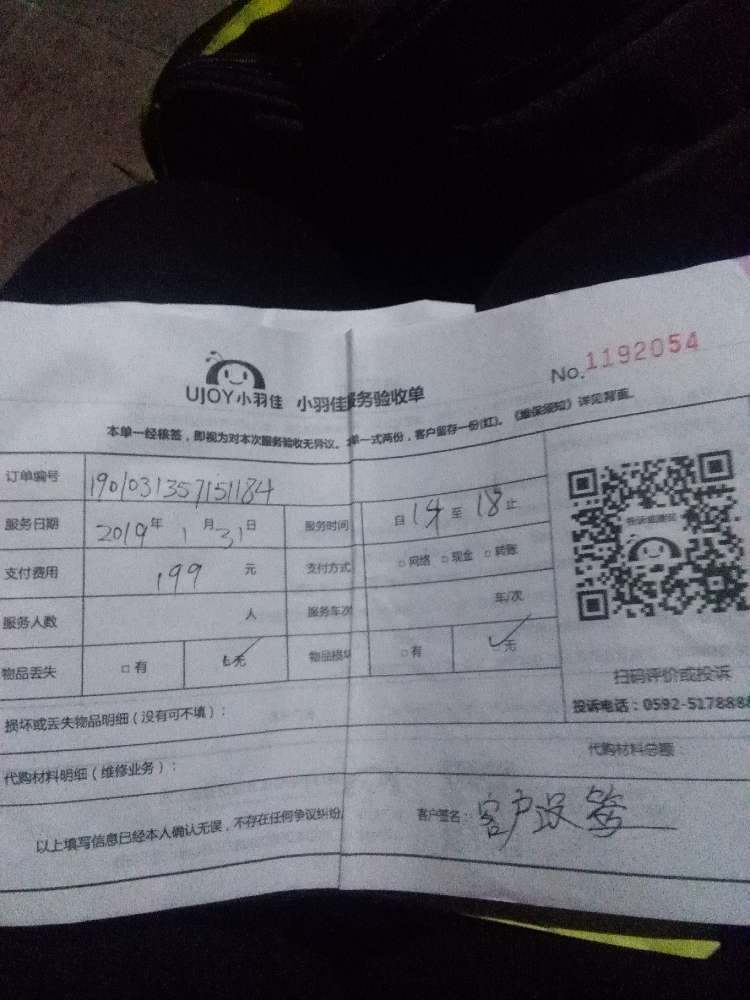 No.1192054
UJOY小羽佳 小羽佳服务验收单
本单一经核签，即视为对本次服务验收无异议。本单一式两份，客户留存一份(红)。《维保须知》详见背面。
订单编号 190103135715​1184
服务日期 2019年1月31日 服务时间 自14至18止
支付费用 199元 支付方式 □网络 □现金 □转账
服务人数 人 服务车次 车/次
物品丢失 □有 ☑无 物品损坏 □有 ☑无
扫码评价或投诉
投诉电话：0592-5178888
损坏或丢失物品明细（没有可不填）：
代购材料明细（维修业务）： 代购材料总额
以上填写信息已经本人确认无误，不存在任何争议纠纷 客户签名：客户没签